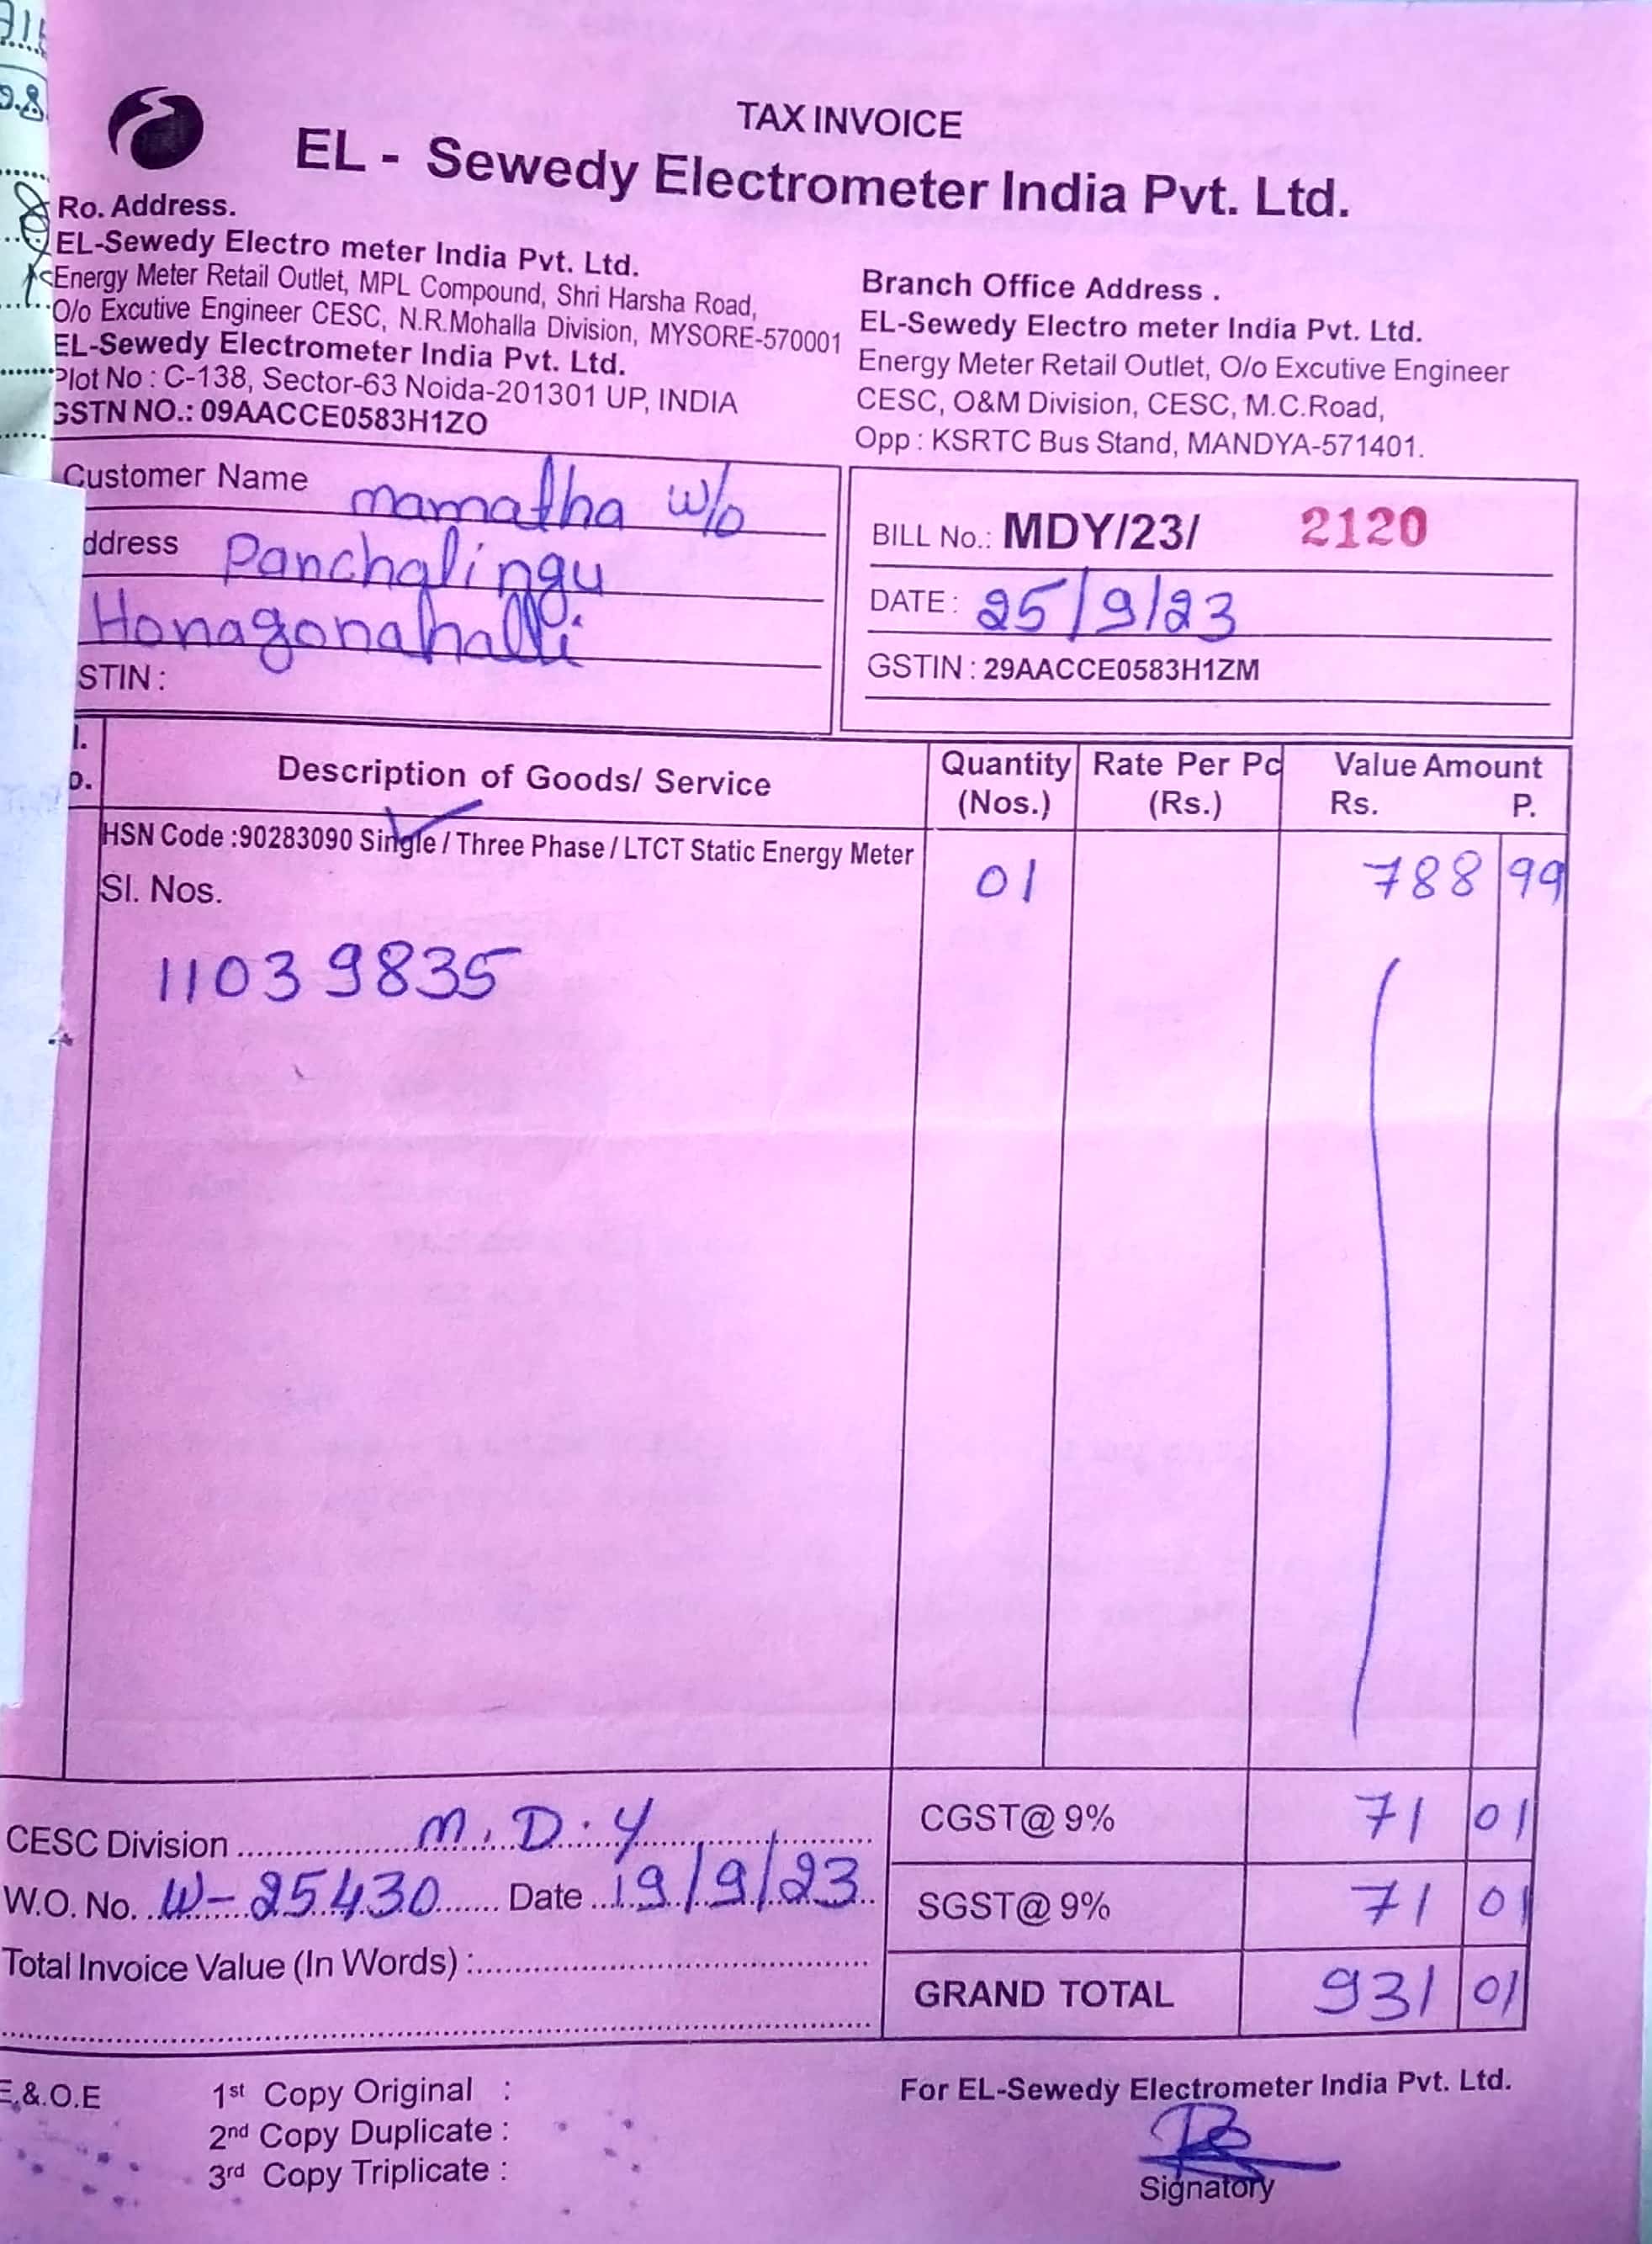 TAX INVOICE
EL - Sewedy Electrometer India Pvt. Ltd.
Ro. Address.
EL-Sewedy Electro meter India Pvt. Ltd.
Energy Meter Retail Outlet, MPL Compound, Shri Harsha Road,
O/o Excutive Engineer CESC, N.R.Mohalla Division, MYSORE-570001
EL-Sewedy Electrometer India Pvt. Ltd.
Plot No : C-138, Sector-63 Noida-201301 UP, INDIA
GSTN NO.: 09AACCE0583H1ZO
Branch Office Address .
EL-Sewedy Electro meter India Pvt. Ltd.
Energy Meter Retail Outlet, O/o Excutive Engineer
CESC, O&M Division, CESC, M.C.Road,
Opp : KSRTC Bus Stand, MANDYA-571401.
Customer Name mamatha w/o
ddress Panchalingu
Honagonahalli
STIN :
BILL No.: MDY/23/ 2120
DATE : 25/9/23
GSTIN : 29AACCE0583H1ZM
Description of Goods/ Service Quantity (Nos.) Rate Per Pc (Rs.) Value Amount Rs. P.
HSN Code :90283090 Single / Three Phase / LTCT Static Energy Meter 01 788 99
Sl. Nos.
11039835
CESC Division M.D.Y
W.O. No. W-25430 Date 19/9/23
Total Invoice Value (In Words) :
CGST@ 9% 71 01
SGST@ 9% 71 01
GRAND TOTAL 931 01
E.&.O.E
1st Copy Original :
2nd Copy Duplicate :
3rd Copy Triplicate :
For EL-Sewedy Electrometer India Pvt. Ltd.
Signatory